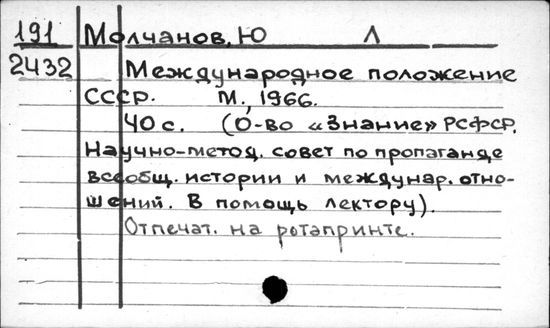 191 Молчанов, Ю Л
2432 Международное положение
СССР. М., 1966.
40 с. (О-во «Знание» РСФСР.
Научно-метод. совет по пропаганде
всеобщ. истории и междунар. отно-
шений. В помощь лектору).
Отпечат. на ротапринте.